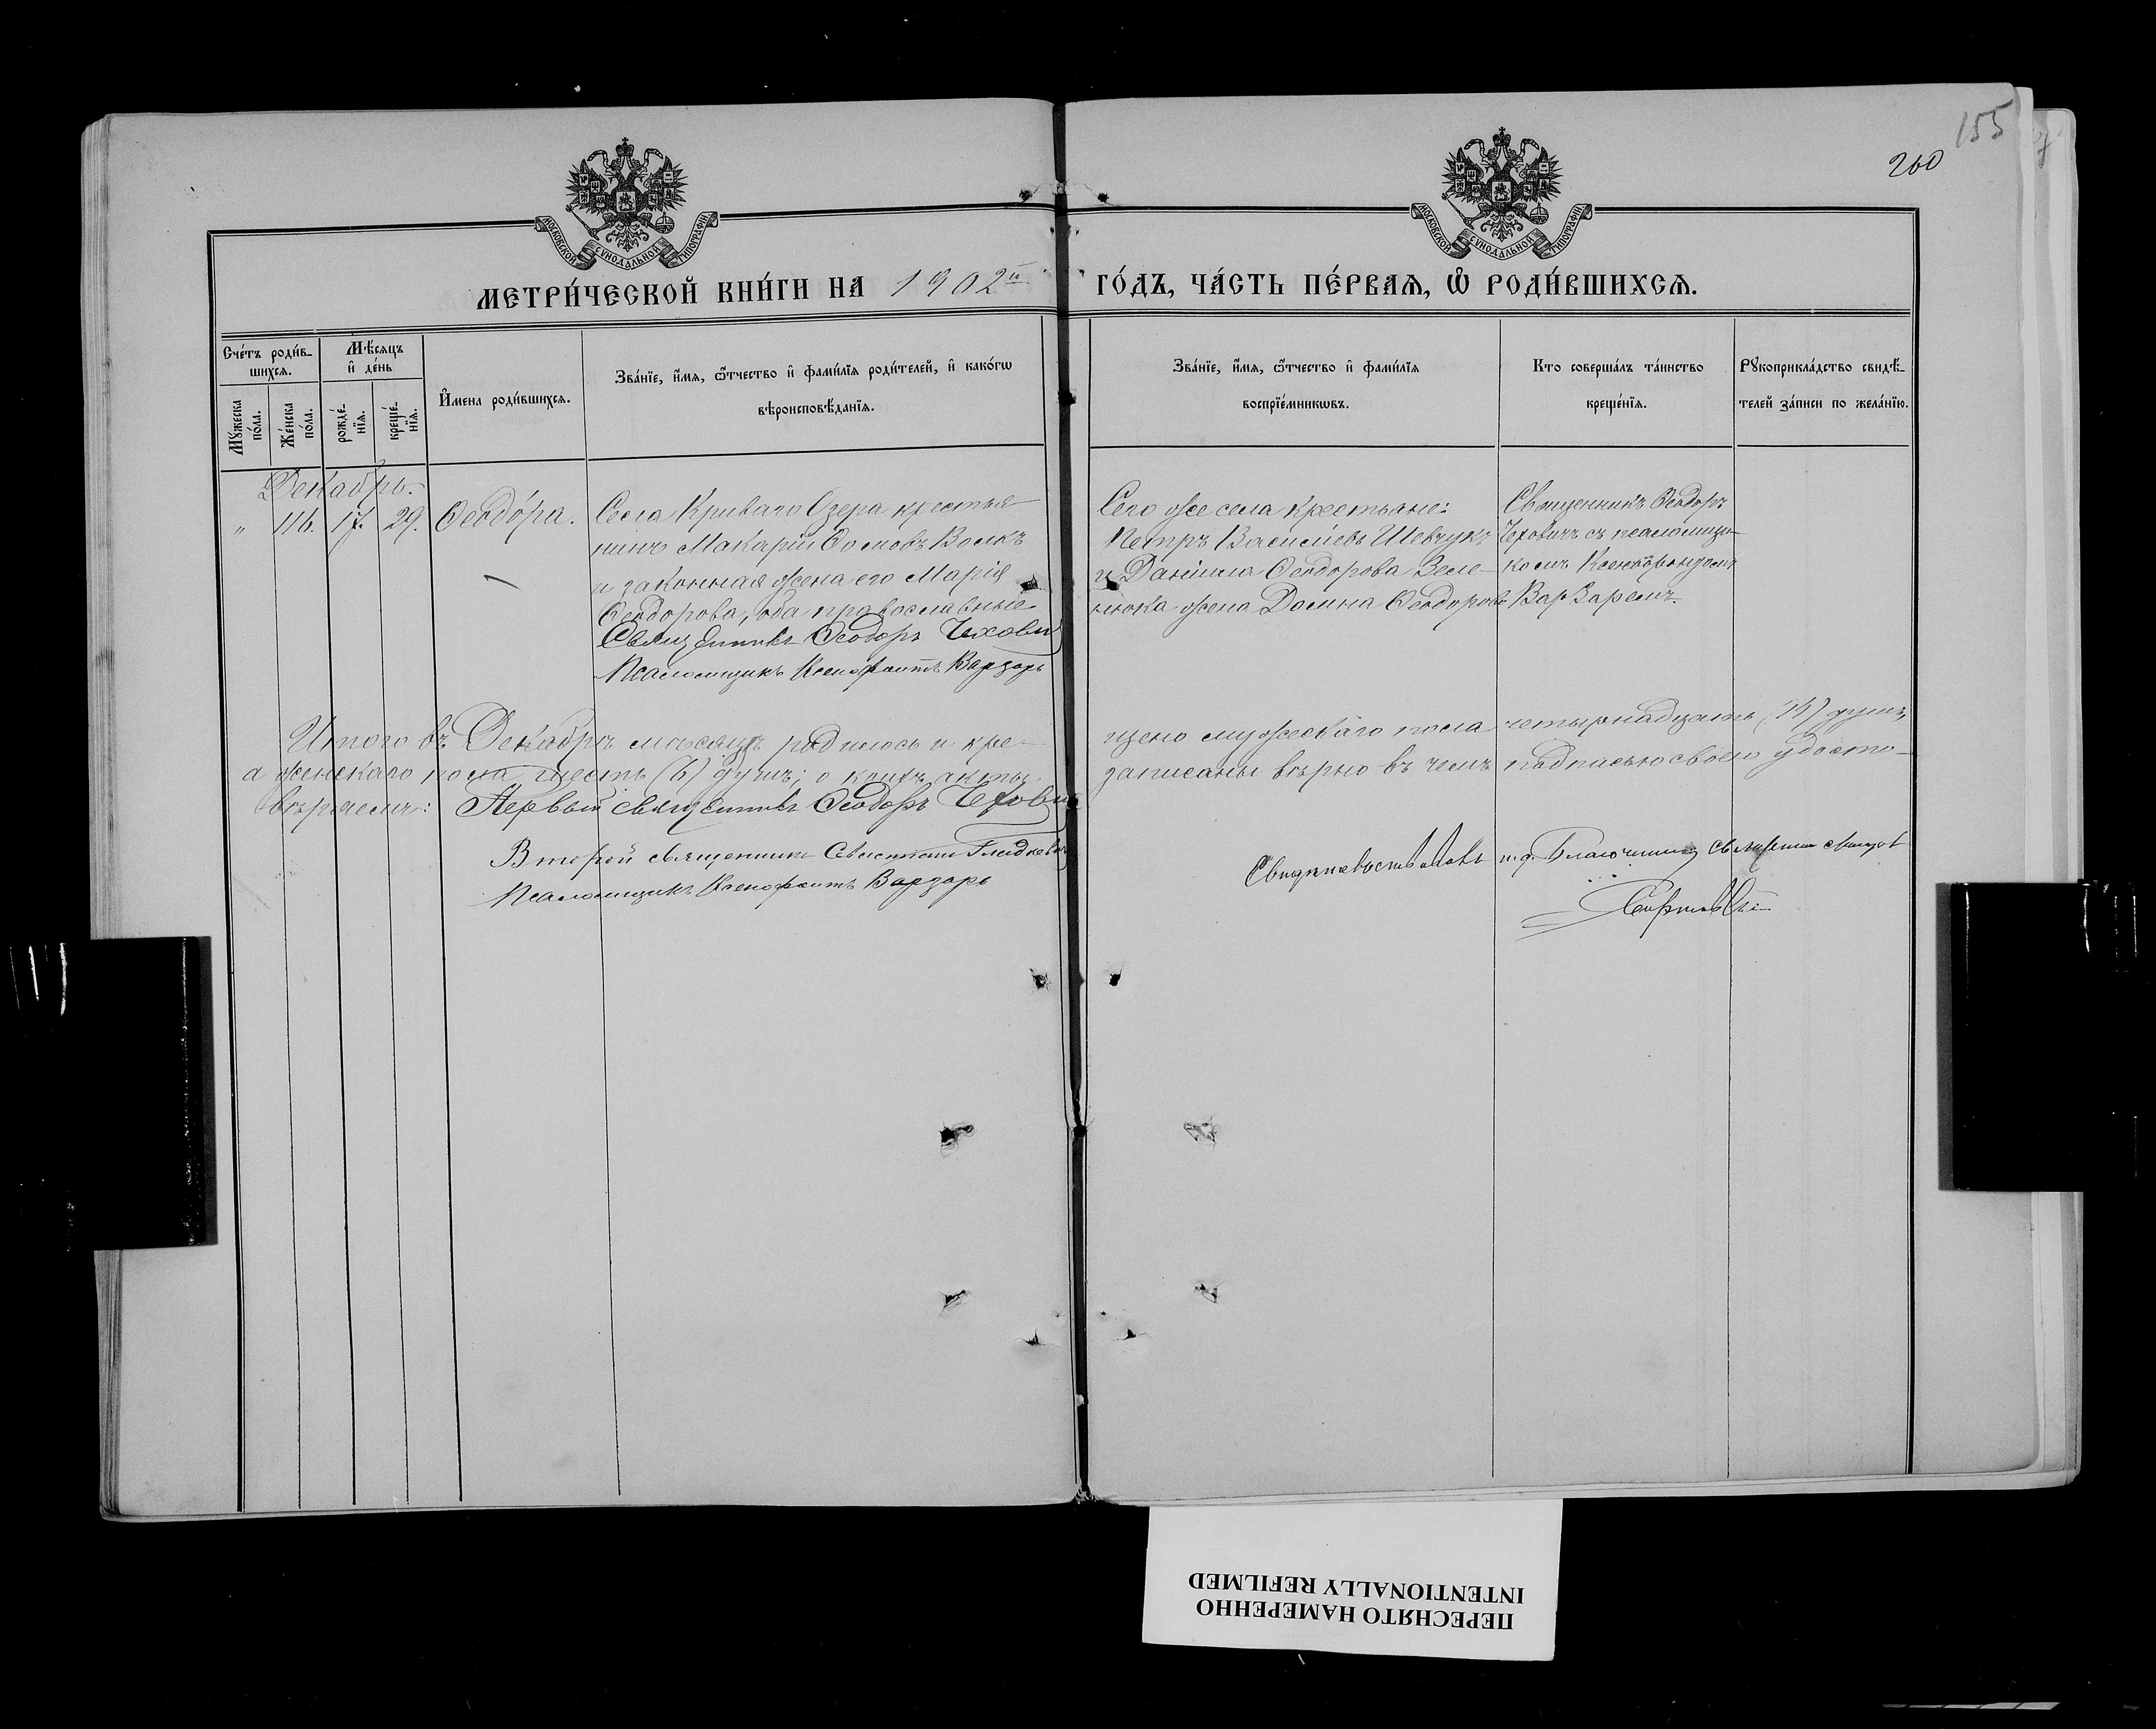 155
260
МОСКОВСКОЙ СѴНОДАЛЬНОЙ ТИПОГРАФІИ
МОСКОВСКОЙ СѴНОДАЛЬНОЙ ТИПОГРАФІИ
МЕТРИ́ЧЕСКОЙ КНИ́ГИ НА 1902й ГО́ДЪ, ЧА́СТЬ ПЕ́РВАѦ, Ѡ҆ РОДИ́ВШИХСѦ.
Сче́тъ роди́в-
шихсѧ.
Мѣ́сѧцъ
и҆ де́нь
Мꙋ́жеска
по́ла.
Же́нска
по́ла.
рожде́-
нїѧ.
креще́-
нїѧ.
И҆мена роди́вшихсѧ.
Зва́нїе, и҆́мѧ, ѻ҆́тчество и҆ фами́лїѧ роди́телей, и҆ како́гѡ
вѣроисповѣ́данїѧ.
Зва́нїе, и҆́мѧ, ѻ҆́тчество и҆ фами́лїѧ
воспрїе́мникѡвъ.
Кто соверша́лъ та́инство
креще́нїѧ.
Рꙋкоприкла́дство свидѣ́-
телей за́писи по жела́нїю.
Декабрь.
" 116. 17. 29. Ѳеодо́ра.
Села Криваго Озера крестья-
нинъ Макарій Ѳомовъ Волкъ
и законная жена его Марія
Ѳеодорова, оба православные
Священникъ Ѳеодоръ Чехови
Псаломщикъ Ксенофонтъ Варзарь
Сего же села крестьяне:
Петръ Васильевъ Шевчукъ
и Даніила Ѳеодорова Зеле-
нюка жена Домна Ѳеодорова
Священникъ Ѳеодоръ
Чеховичъ съ псаломщи-
комъ Ксенофонтомъ
Варзаремъ.
Итого въ Декабрѣ мѣсяцѣ родилось и кре-
щено мужескаго пола четырнадцать (14) душъ,
а женскаго пола шесть (6) душъ; о коихъ акты
записаны вѣрно въ чемъ подписью своею удосто-
вѣряемъ: Первый священникъ Ѳеодоръ Чехови
Второй священникъ
Псаломщикъ Ксенофонтъ Варзарь
Свидѣтельствовалъ и. д. Благочиннаго
ПЕРЕСНЯТО НАМЕРЕННО
INTENTIONALLY REFILMED